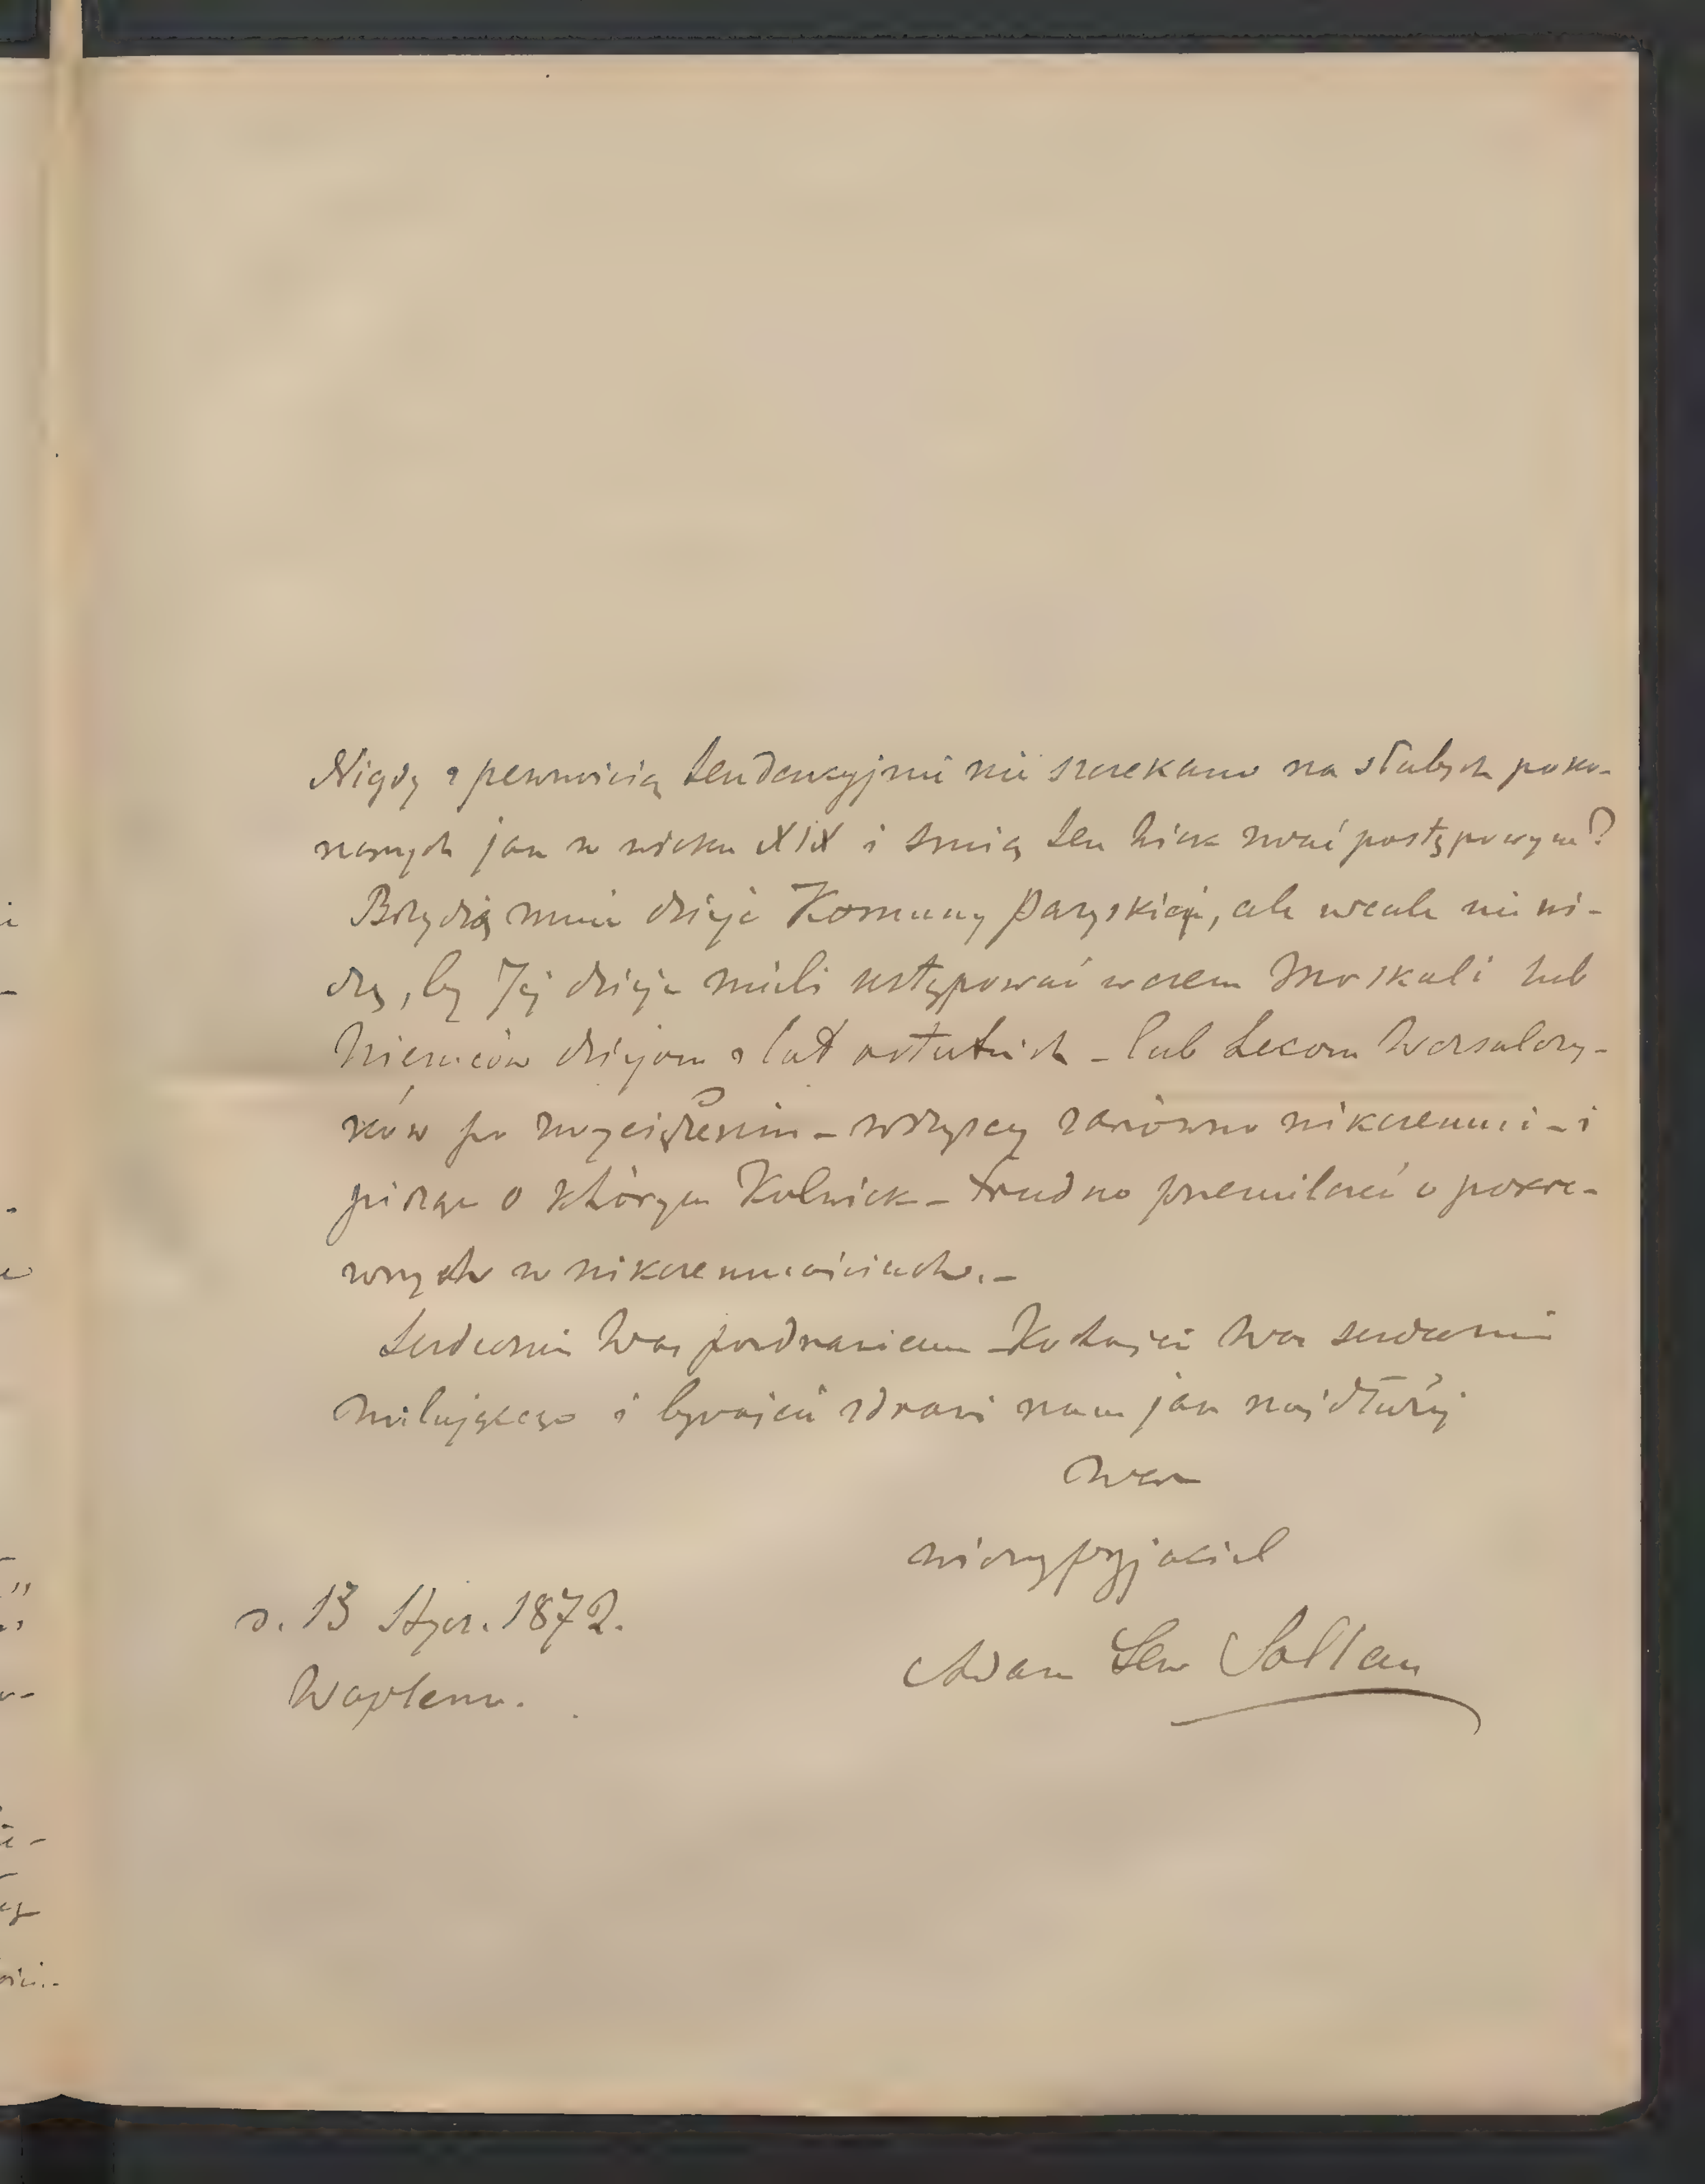 Nigdy z pewnością tendencyjniej nie szczekano na słabych poko-
nanych jak w wieku XIX i śmią ten wiek zwać postępowym?
Brzydzą mnie dzieje Komuny Paryskiej, ale wcale nie wi-
dzę, by Jej dzieje mieli ustępować w czem Moskali lub
Niemców dziejom z lat ostatnich – lub hecom Wersalczy-
ków po zwycięztwie – wszyscy zarówno nikczemni – i
pisząc o którym Kolwiek – trudno przemilczeć o pokre-
wnych w nikczemnościach. –
Serdecznie Was pozdrawiam – Kochajcie Was serdecznie
miłującego i bywajcie zdrowi nam jak najdłużej
Wasz
wierny przyjaciel
d. 13 Stycz. 1872.
Adam Lew Sołtan
Waplewo.